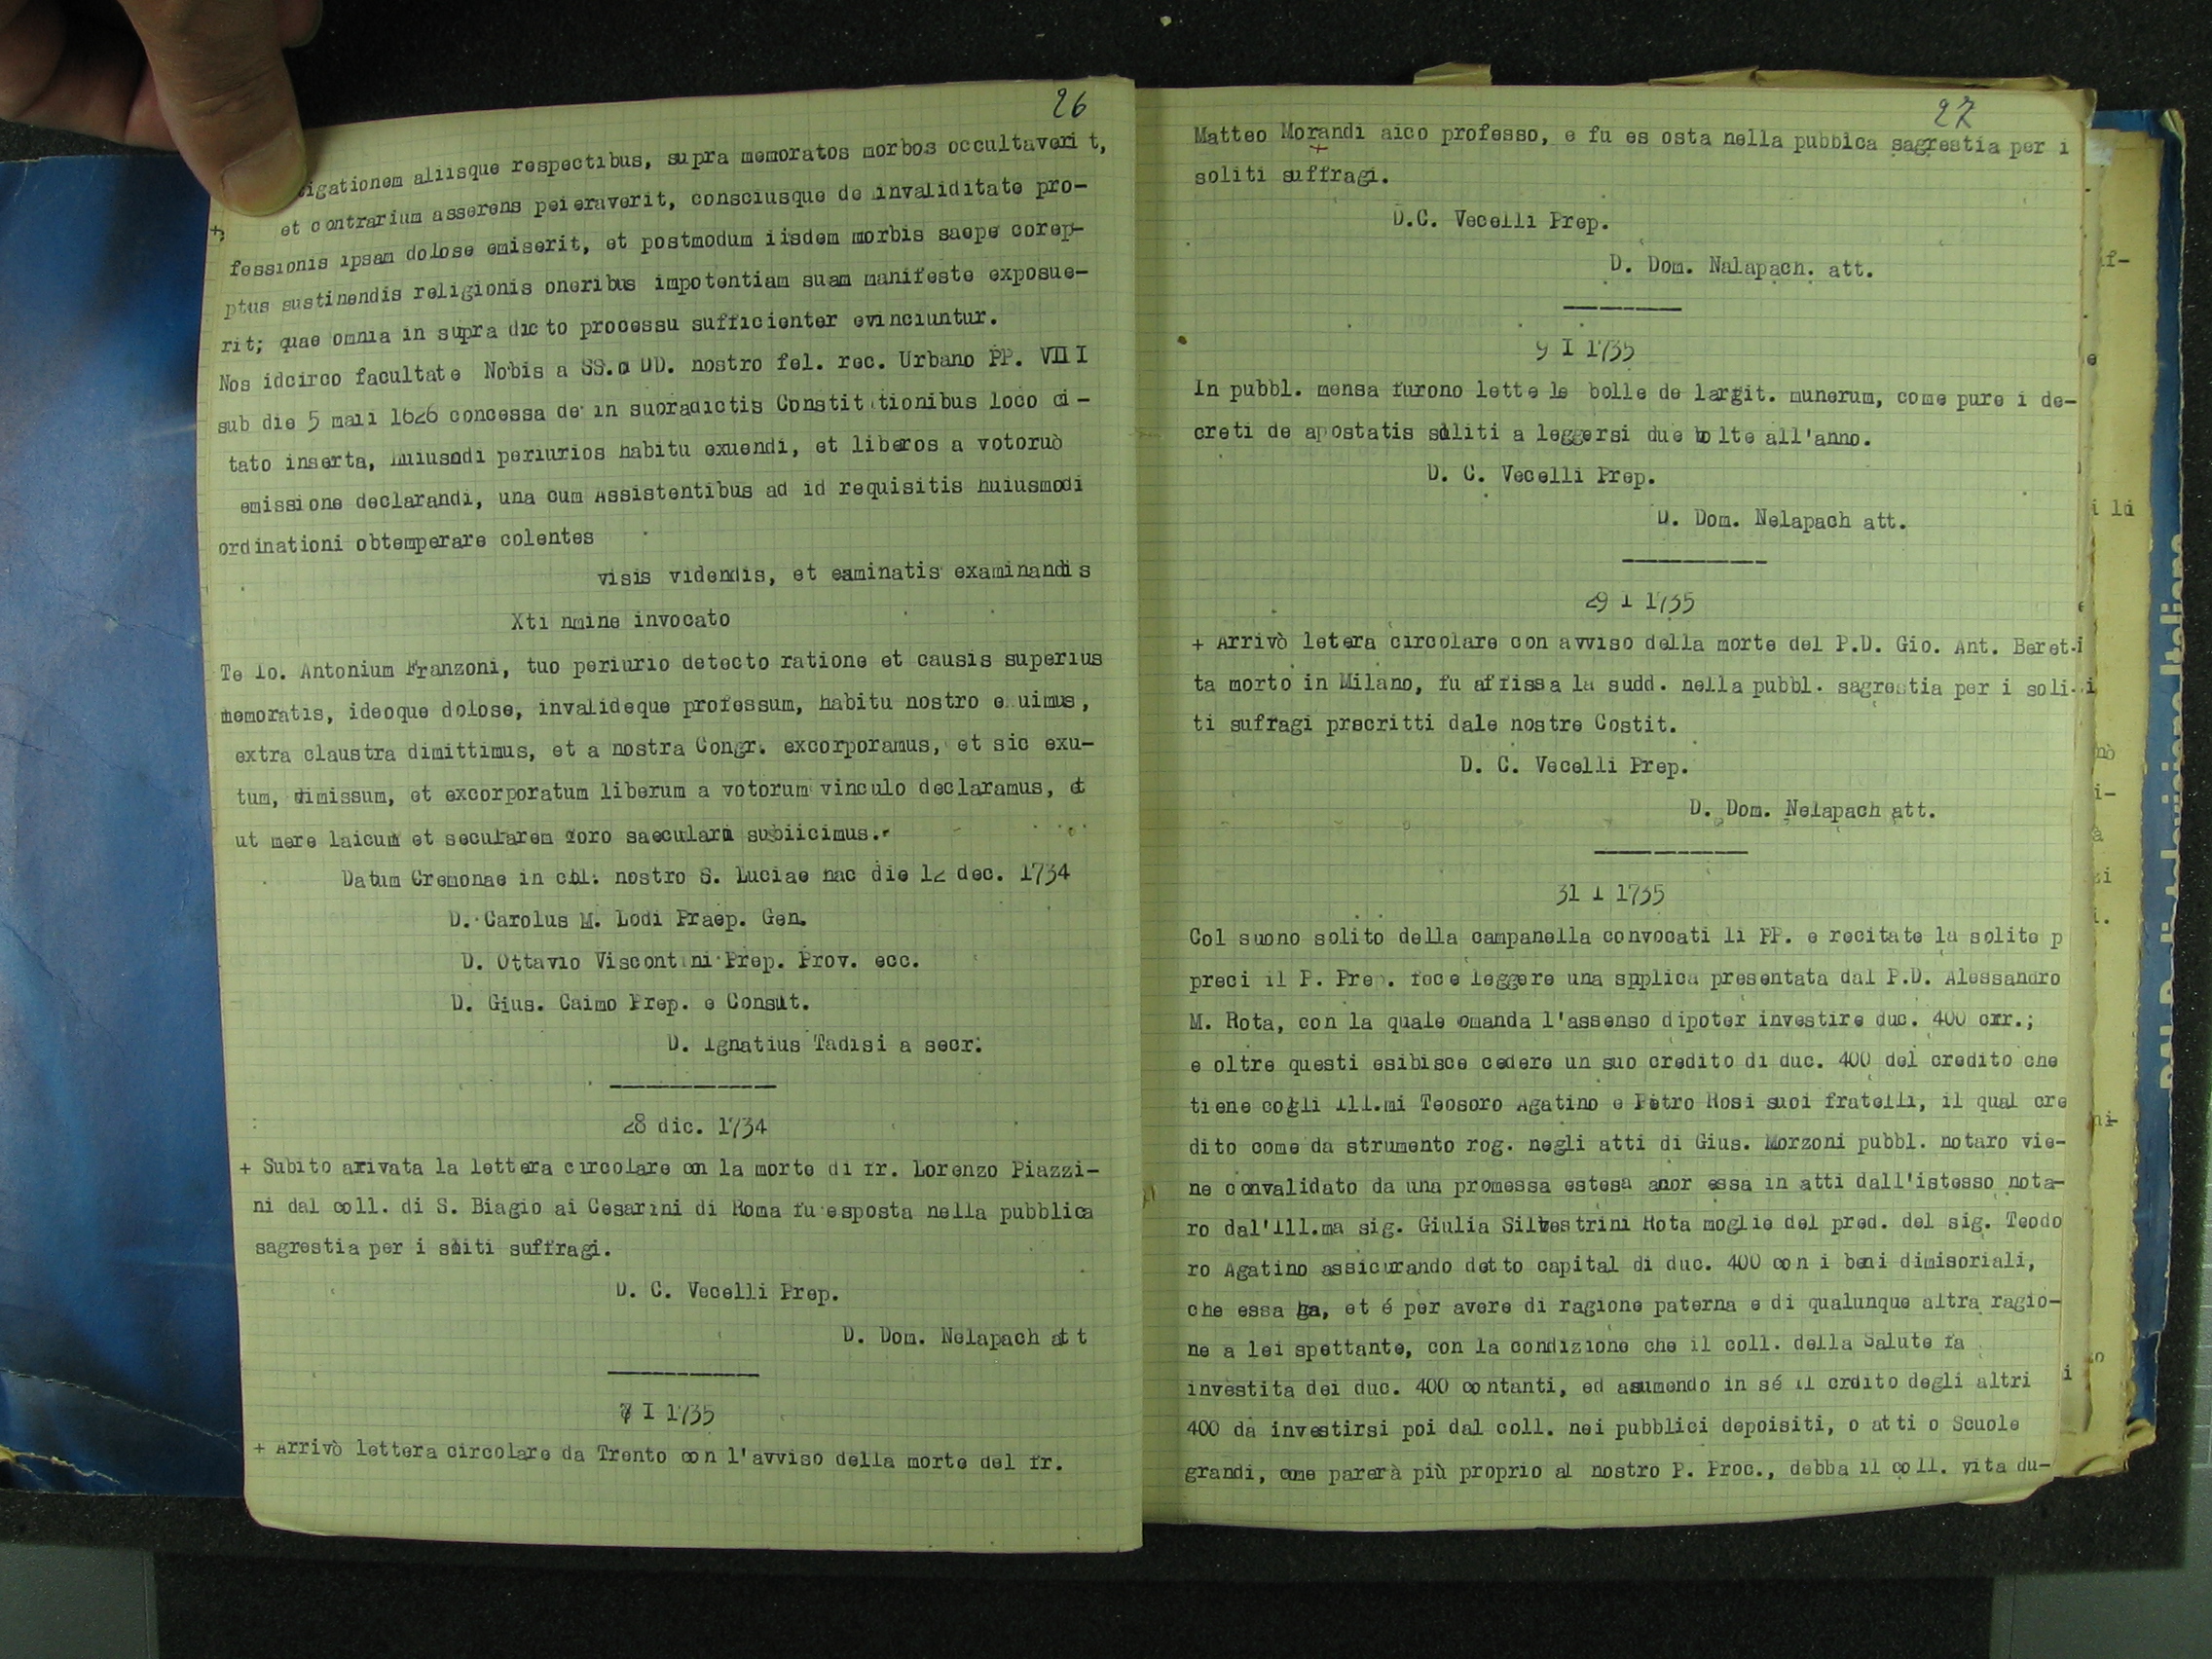 26
tigationem aliisque respectibus, supra memoratos morbos occultaveri t,
et contrarium asserens peieraverit, consciusque de invaliditate pro-
fessionis ipsam dolose emiserit, et postmodum iisdem morbis saepe corep-
ptus sustinendis religionis oneribus impotentiam suam manifeste exposue-
rit; quae omnia in supra dicto processu sufficienter evinciuntur.
Nos idcirco facultate Nobis a SS.o DD. nostro fel. rec. Urbano PP. VIII
sub die 5 maii 1626 concessa de in supradictis Constit tionibus loco ci-
tato inserta, huiusmodi periurios habitu exuendi, et liberos a votoruò
emissione declarandi, una cum Assistentibus ad id requisitis huiusmodi
ordinationi obtemperare colentes
visis videndis, et eaminatis examinandis
Xti nmine invocato
Te Io. Antonium Franzoni, tuo periurio detecto ratione et causis superius
memoratis, ideoque dolose, invalideque professum, habitu nostro e uimus,
extra claustra dimittimus, et a nostra Congr. excorporamus, et sic exu-
tum, dimissum, et excorporatum liberum a votorum vinculo declaramus, et
ut mere laicum et secularem foro saeculari subiicimus.
Datum Cremonae in col. nostro S. Luciae hac die 12 dec. 1734
D. Carolus M. Lodi Praep. Gen.
D. Ottavio Viscontini Prep. Prov. ecc.
D. Gius. Caimo Prep. e Consult.
D. Ignatius Tadisi a secr.
28 dic. 1734
+ Subito arivata la lettera circolare con la morte di fr. Lorenzo Piazzi-
ni dal coll. di S. Biagio ai Cesarini di Roma fu esposta nella pubblica
sagrestia per i soliti suffragi.
D. C. Vecelli Prep.
D. Dom. Nelapach att
7 I 1735
+ Arrivò lettera circolare da Trento con l'avviso della morte del fr.
27
Matteo Morandi aico professo, e fu es osta nella pubbica sagrestia per i
soliti suffragi.
D.C. Vecelli Prep.
D. Dom. Nalapach. att.
9 I 1735
In pubbl. mensa furono lette le bolle de largit. munerum, come pure i de-
creti de apostatis soliti a leggersi due volte all'anno.
D. C. Vecelli Prep.
D. Dom. Nelapach att.
29 I 1735
+ Arrivò letera circolare con avviso della morte del P.D. Gio. Ant. Beret-
ta morto in Milano, fu affissa la sudd. nella pubbl. sagrestia per i soli-
ti sufragi prscritti dale nostre Costit.
D. C. Vecelli Prep.
D. Dom. Nelapach att.
31 I 1735
Col suono solito della campanella convocati li PP. e recitate la solite p
preci il P. Pre . fece leggere una spplica presentata dal P.D. Alessandro
M. Rota, con la quale omanda l'assenso dipoter investire duc. 400 crr.;
e oltre questi esibisce cedere un suo credito di duc. 400 del credito che
tiene cogli ill.mi Teosoro Agatino e Pietro Rosi suoi fratelli, il qual cre
dito come da strumento rog. negli atti di Gius. Morzoni pubbl. notaro vie-
ne convalidato da una promessa estesa anor essa in atti dall'istesso nota-
ro dal'ill.ma sig. Giulia Silvestrini Rota moglie del pred. del sig. Teodo
ro Agatino assicurando detto capital di duc. 400 con i beni dimisoriali,
che essa ha, et é per avere di ragione paterna e di qualunque altra ragio-
ne a lei spettante, con la condizione che il coll. della Salute fa
investita dei duc. 400 contanti, ed asumendo in sé il crdito degli altri
400 da investirsi poi dal coll. nei pubblici depoisiti, o atti o Scuole
grandi, come parerà più proprio al nostro P. Proc., debba il coll. vita du-